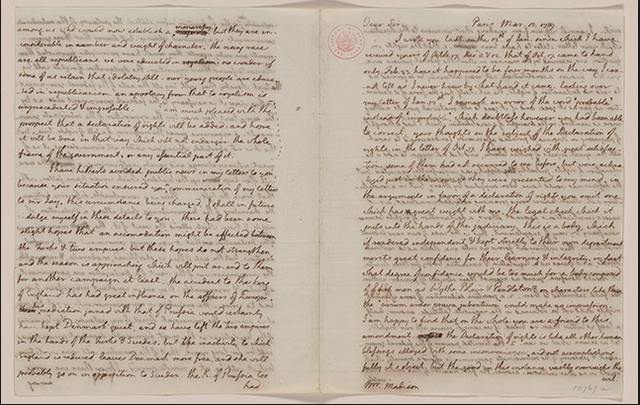 among us who would now establish a monarchy. but they are in-
considerable in number and weight of character. the rising race
are all republicans. we were educated in royalism: no wonder if
some of us retain that idolatry still. our young people are educa-
ted in republicanism. an apostacy from that to royalism is
unprecedented & impossible. I am much pleased with the
prospect that a declaration of rights will be added: and hope
it will be done in that way which will not endanger the whole
frame of the government, or any essential part of it.
I have hitherto avoided public news in my letters to you,
because your situation ensured you a communication of my letters
to mr Jay. this circumstance being changed, I shall in future
indulge myself in these details to you. there had been some
slight hopes that an accomodation might be effected between
the Turks & two empires. but these hopes do not strengthen,
and the season is approaching which will put an end to them
for another campaign at least. the accident to the king
of England has had great influence on the affairs of Europe.
his mediation joined with that of Prussia would certainly
have kept Denmark quiet, and so have left the two empires
in the hands of the Turks & Swedes. but the inactivity to which
England is reduced leaves Denmark more free, and she will
probably go on in opposition to Sweden. the K. of Prussia too
had
Dear Sir Paris Mar. 15. 1789
I wrote you last on the 12th of Jan. since which I have
received yours of Octob. 17. Dec. 8. & 12. that of Oct. 17. came to hand
only Feb. 23. how it happened to be four months on the way, I can-
not tell, as I never knew by what hand it came. looking over
my letter of Jan. 12. I remark an error of the word 'probable'
instead of 'improbable', which doubtless however you had been able
to correct. your thoughts on the subject of the Declaration of
rights in the letter of Oct. 17. I have weighed with great satisfac-
tion. some of them had not occurred to me before, but were acknow-
leged just in the moment they were presented to my mind. in
the arguments in favor of a declaration of rights, you omit one
which has great weight with me, the legal check which it
puts into the hands of the judiciary. this is a body, which
if rendered independent, & kept strictly to their own department
merits great confidence for their learning & integrity. in fact
what degree of confidence would be too much for a body composed
of such men as Wythe, Blair & Pendleton? on characters like these
the 'civium ardor prava jubentium' would make no impression.
I am happy to find that on the whole you are a friend to this
amendment. the Declaration of rights is like all other human
blessings alloyed with some inconveniences, and not accomplishing
fully it's object. but the good in this instance vastly overweighs the
evil.
Mr. Madison